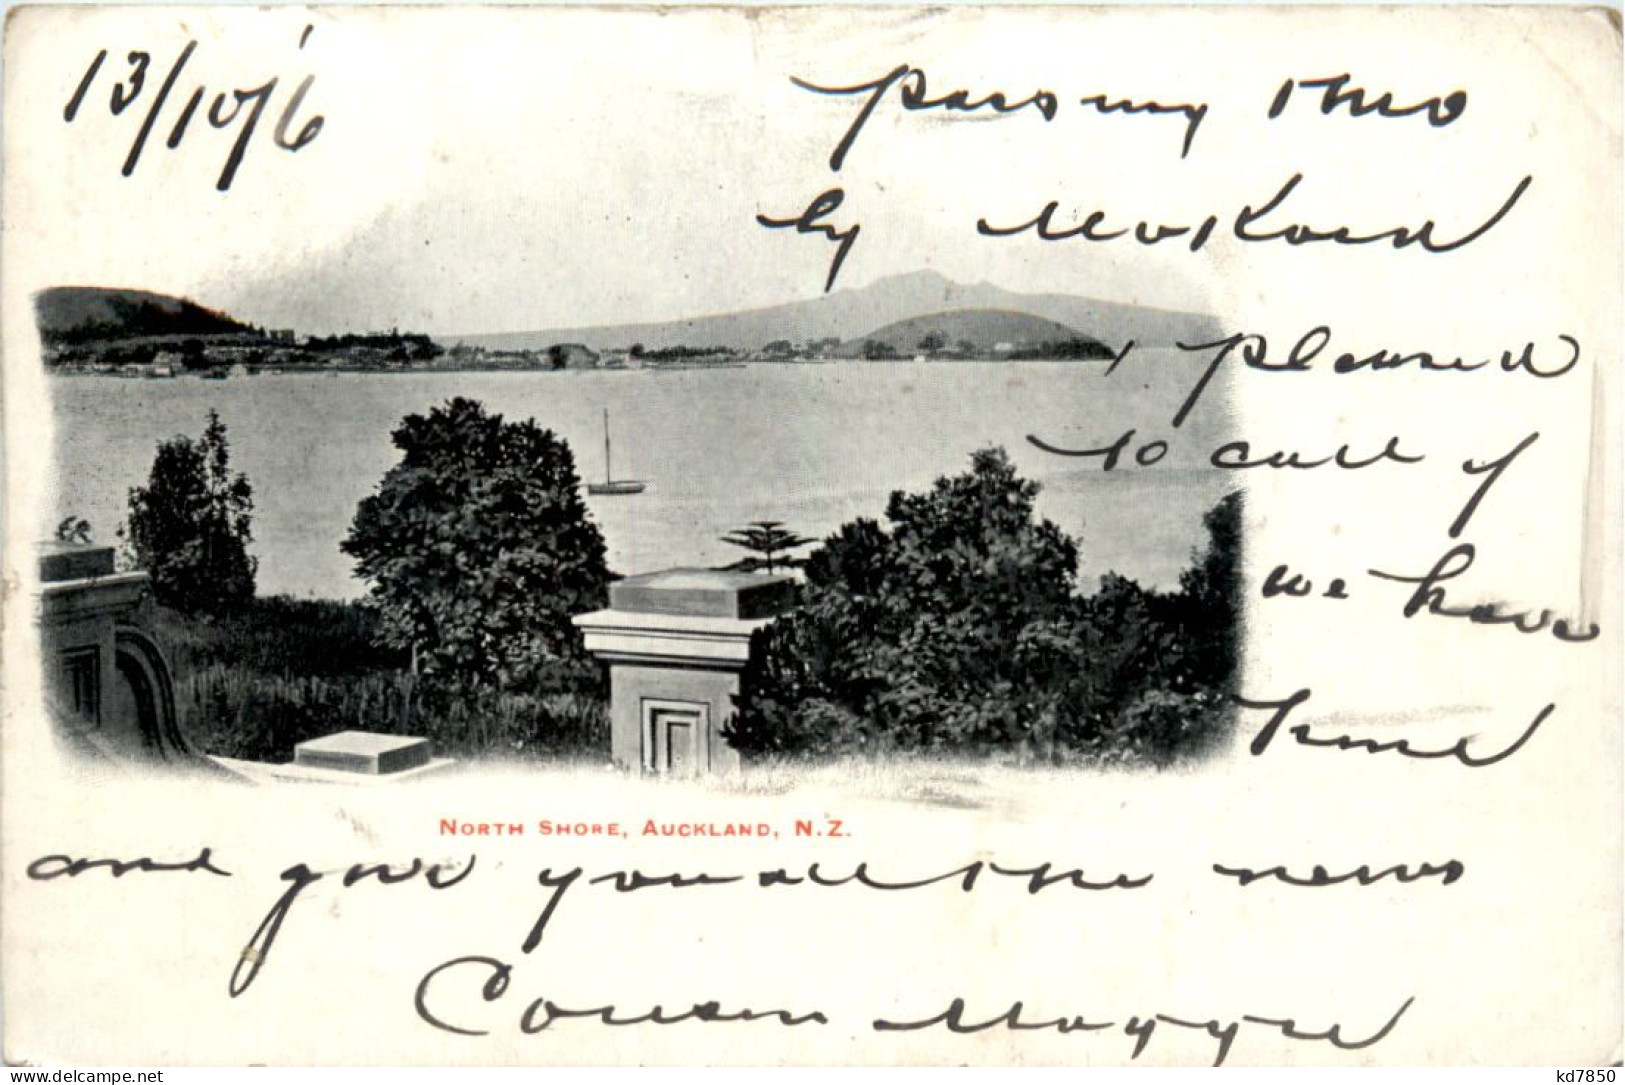 13/10/6
passing thro
by
pleased
to call if
we have
time
NORTH SHORE, AUCKLAND, N.Z.
and give you all the news
Cousin Maggie
delcampe.net
kd7850